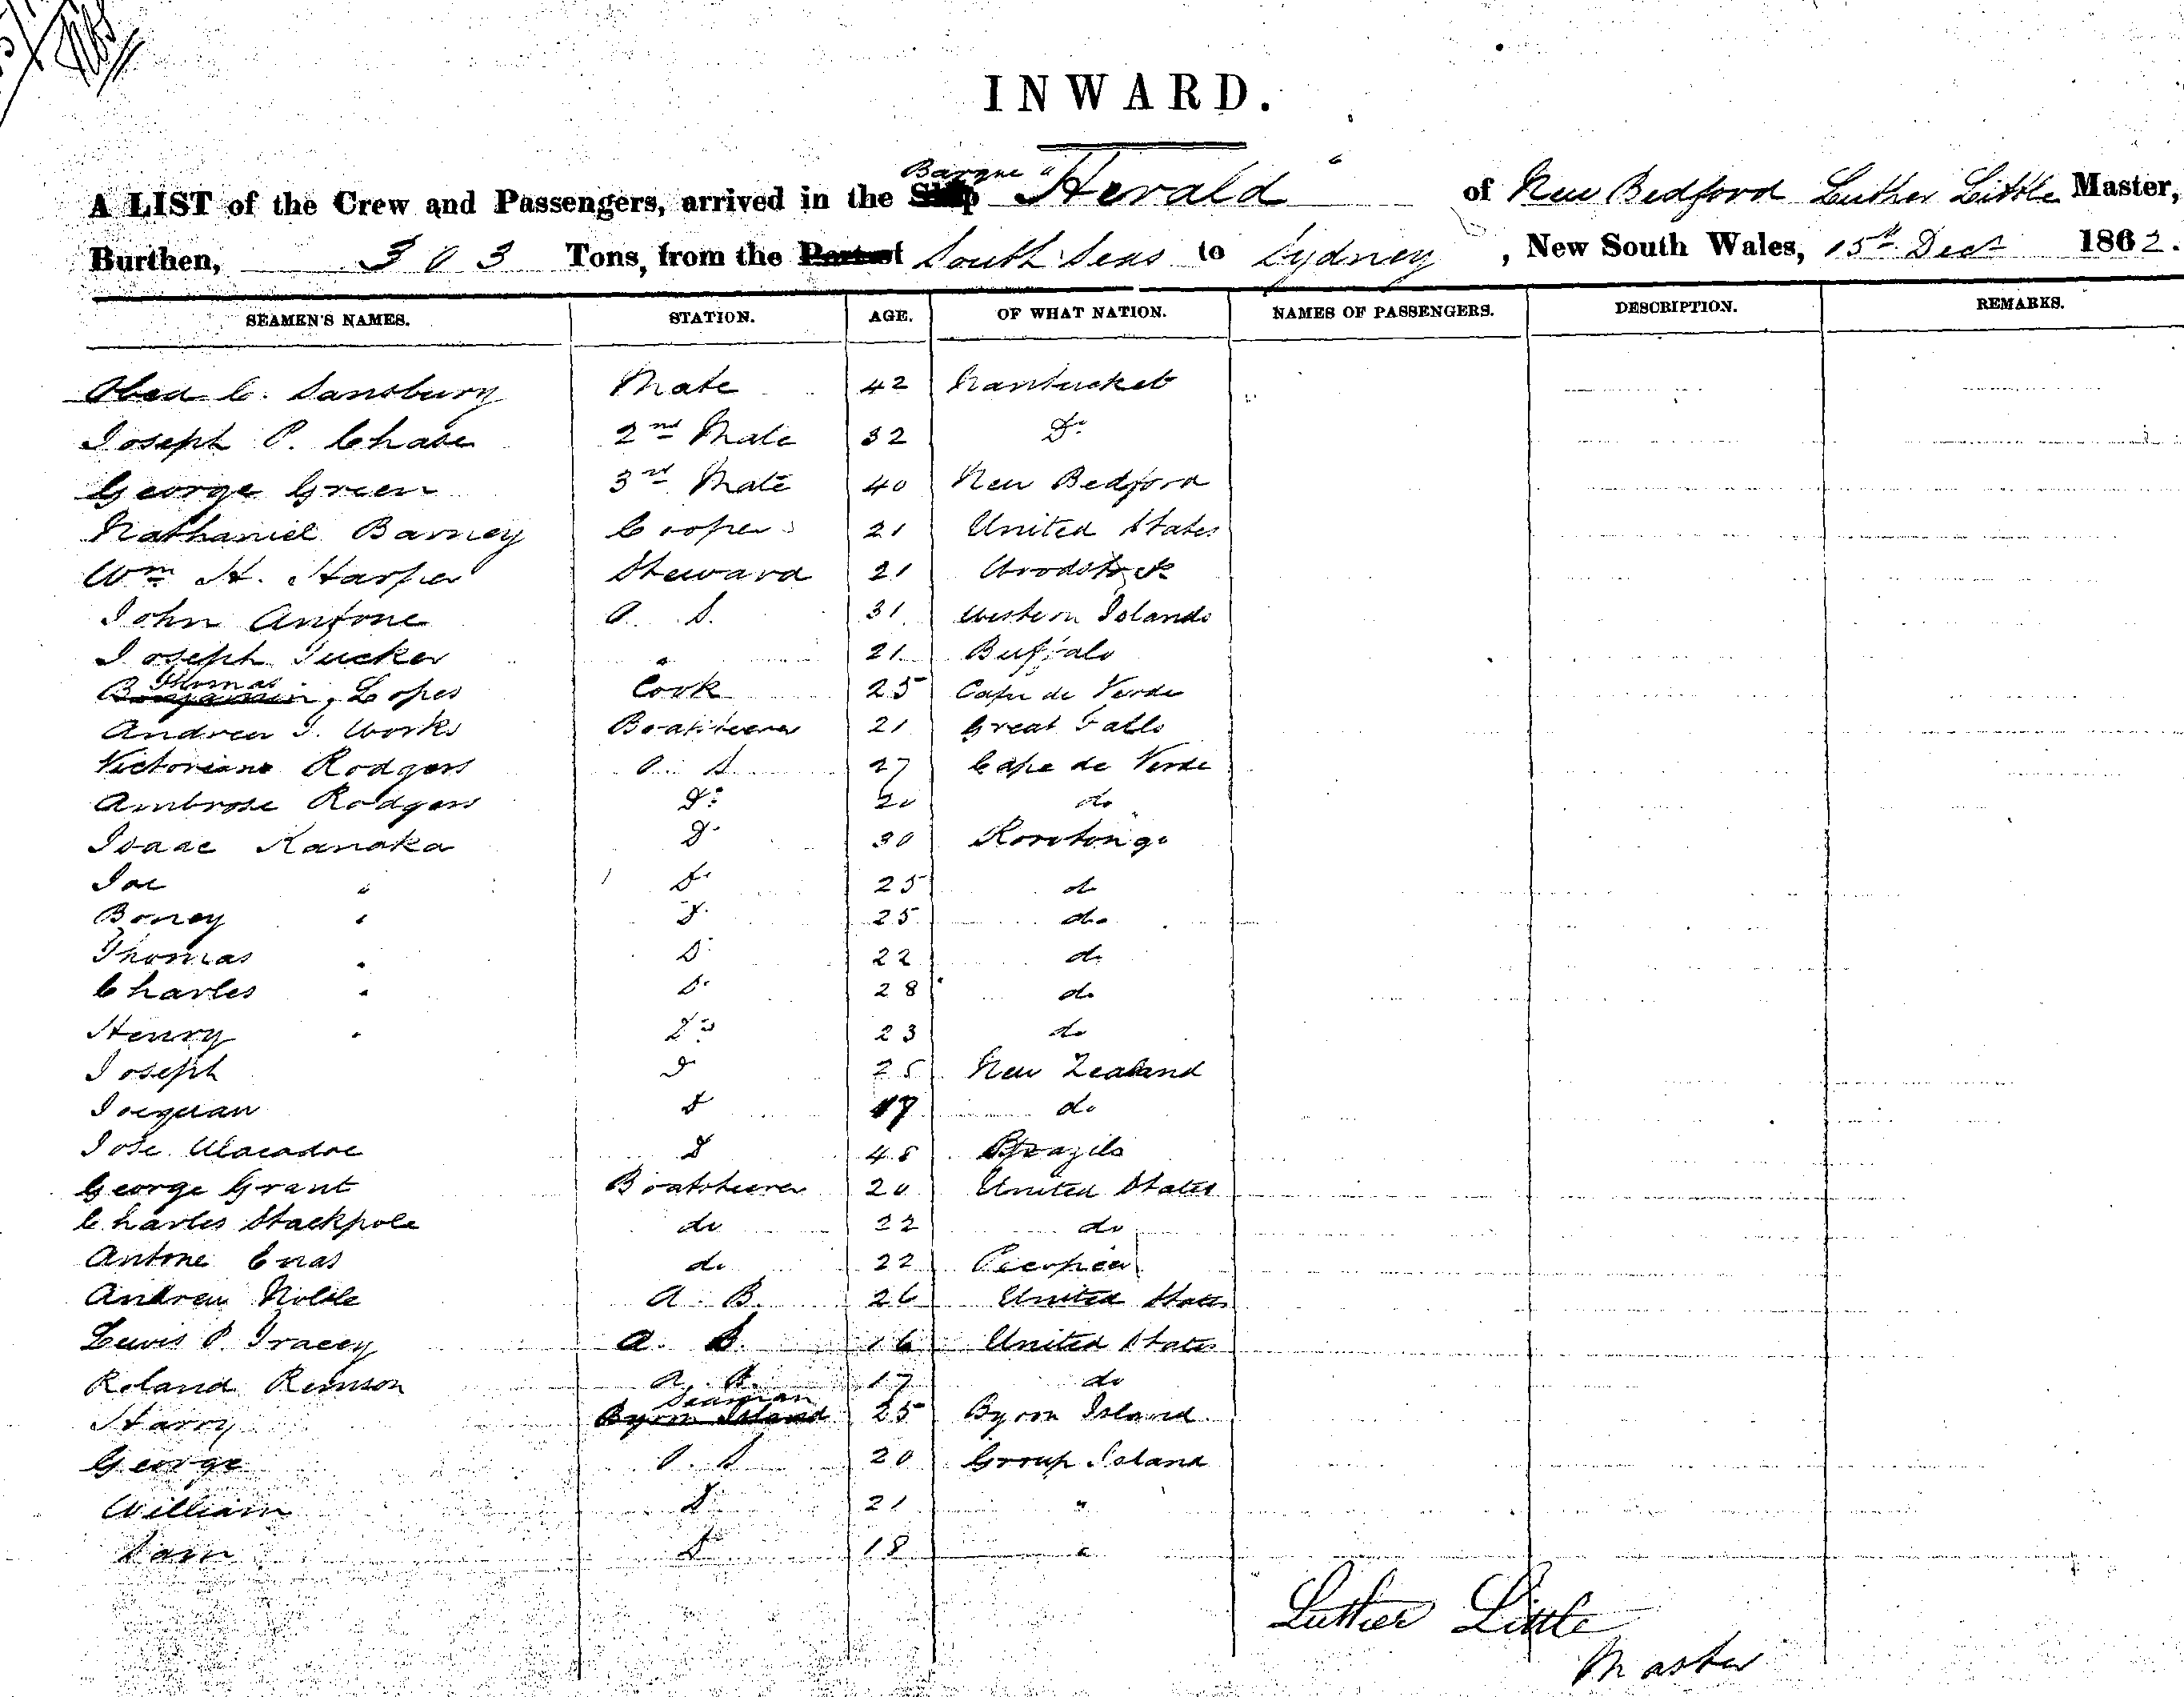 INWARD.
Barque
A LIST of the Crew and Passengers, arrived in the Ship "Herald" of New Bedford Luther Little Master,
Burthen, 303 Tons, from the Port of South Seas to Sydney, New South Wales, 15th Decr 1862.
SEAMEN'S NAMES. STATION. AGE. OF WHAT NATION. NAMES OF PASSENGERS. DESCRIPTION. REMARKS.
Obed C. Sansbury Mate 42 Nantucket
Joseph P. Chase 2nd Mate 32 Do
George Green 3rd Mate 40 New Bedford
Nathaniel Barney Cooper 21 United States
Wm H. Harper Steward 21 Woodstock
John Antone O. S. 31 Western Islands
Joseph Tucker " 21 Buffalo
Thomas
Benjamin Lopes Cook 25 Cape de Verde
Andrew J. Works Boatsteerer 21 Great Falls
Victoriano Rodgers O. S. 27 Cape de Verde
Ambrose Rodgers Do 20 do
Isaac Kanaka Do 30 Rorotonga
Joe " Do 25 do
Boney " Do 25 do
Thomas " Do 22 do
Charles " Do 28 do
Henry " Do 23 do
Joseph Do 25 New Zealand
Do 17 do
Jose Do 48 Brazils
George Grant Boatsteerer 20 United States
Charles Stackpole do 22 do
Antone do 22
Andrew Noble A. B. 26 United States
Lewis P. Tracey O. S. 16 United States
Roland Remson A. B. 17 do
Seaman
Harry Byron Island 25 Byron Island
George O. S. 20 Group Island
William Do 21 "
Sam Do 18 "
Luther Little
Master